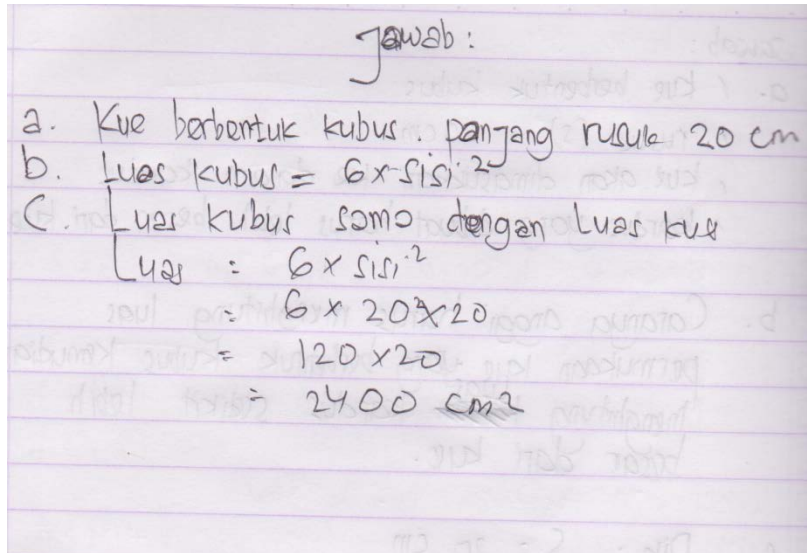 Jawab :
a. Kue berbentuk kubus. panjang rusuk 20 cm
b. Luas kubus = 6 x sisi²
C. Luas kubus sama dengan Luas kue
Luas = 6 x sisi²
= 6 x 20 x 20
= 120 x 20
= 2400 cm2